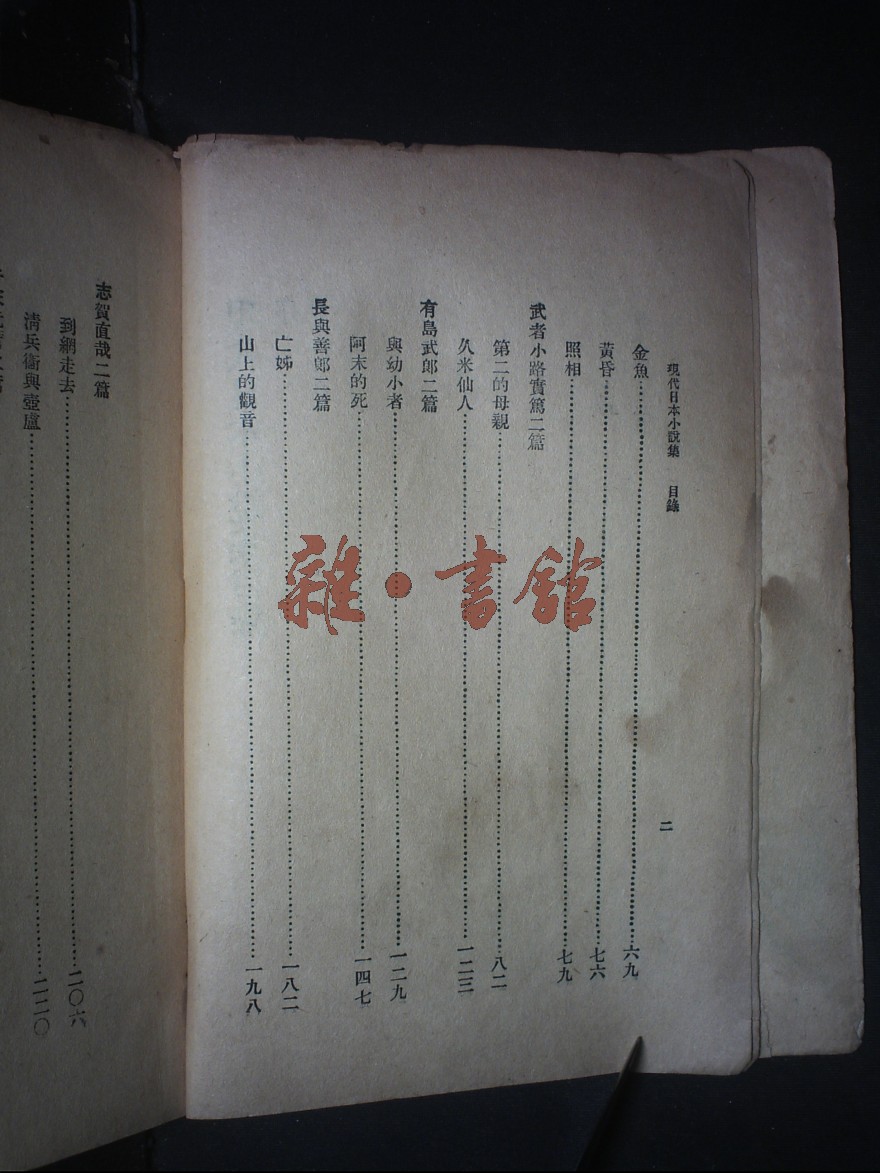 現代日本小說集 目錄
二
金魚……六九
黃昏……七六
照相……七九
武者小路實篤二篇
第二的母親……八二
久米仙人……一二三
有島武郎二篇
與幼小者……一二九
阿末的死……一四七
長與善郎二篇
亡姊……一八二
山上的觀音……一九八
志賀直哉二篇
到網走去……二〇六
清兵衞與壺盧……二二〇
雜·書館